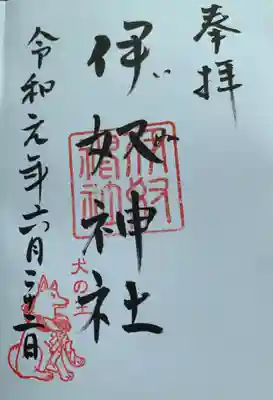 奉拝
伊奴神社
いぬ
伊奴神社
犬の王
令和元年六月二十二日